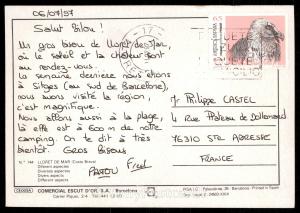 06/07/97
Salut Bilou!
Un gros bisou de Lloret de Mar,
où le soleil et la chaleur sont
au rendez-vous.
La semaine dernière nous étions
à Sitges (au sud de Barcelone),
nous avons visité la région,
c'est magnifique.
Nous allons aussi à la plage,
là elle est à 600 m de notre
camping. On te dit à très
bientôt. Gros Bisous
Fred
Mr Philippe CASTEL
4 Rue
76310 STE ADRESSE
FRANCE
N.º 144 LLORET DE MAR (Costa Brava)
Diversos aspectos
Différents aspects
Different aspects
COMERCIAL ESCUT D'OR, S.A. - Barcelona
Printed in Spain